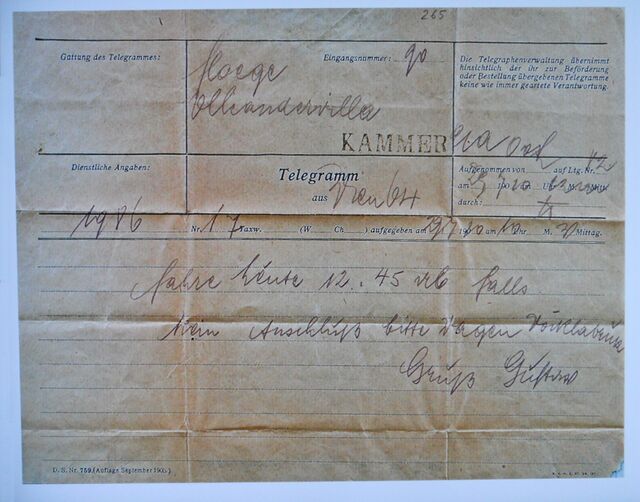 265
Gattung des Telegrammes:
Floege
Villa
Eingangsnummer: 90
Die Telegraphenverwaltung übernimmt
hinsichtlich der ihr zur Beförderung
oder Bestellung übergebenen Telegramme
keine wie immer geartete Verantwortung.
KAMMER
Dienstliche Angaben:
Telegramm
aus Wien
Aufgenommen von auf Ltg. Nr. 42
am 190 Uhr M. Mittag
durch:
1986 Nr. 17 Taxw. (W. Ch ) aufgegeben am 190 Uhr M. Mittag.
fahre heute 12.45 ab falls
kein Anschluß bitte Wagen Vöcklabruck
Gruß Gustav
D. S. Nr. 769. (Auflage September 190